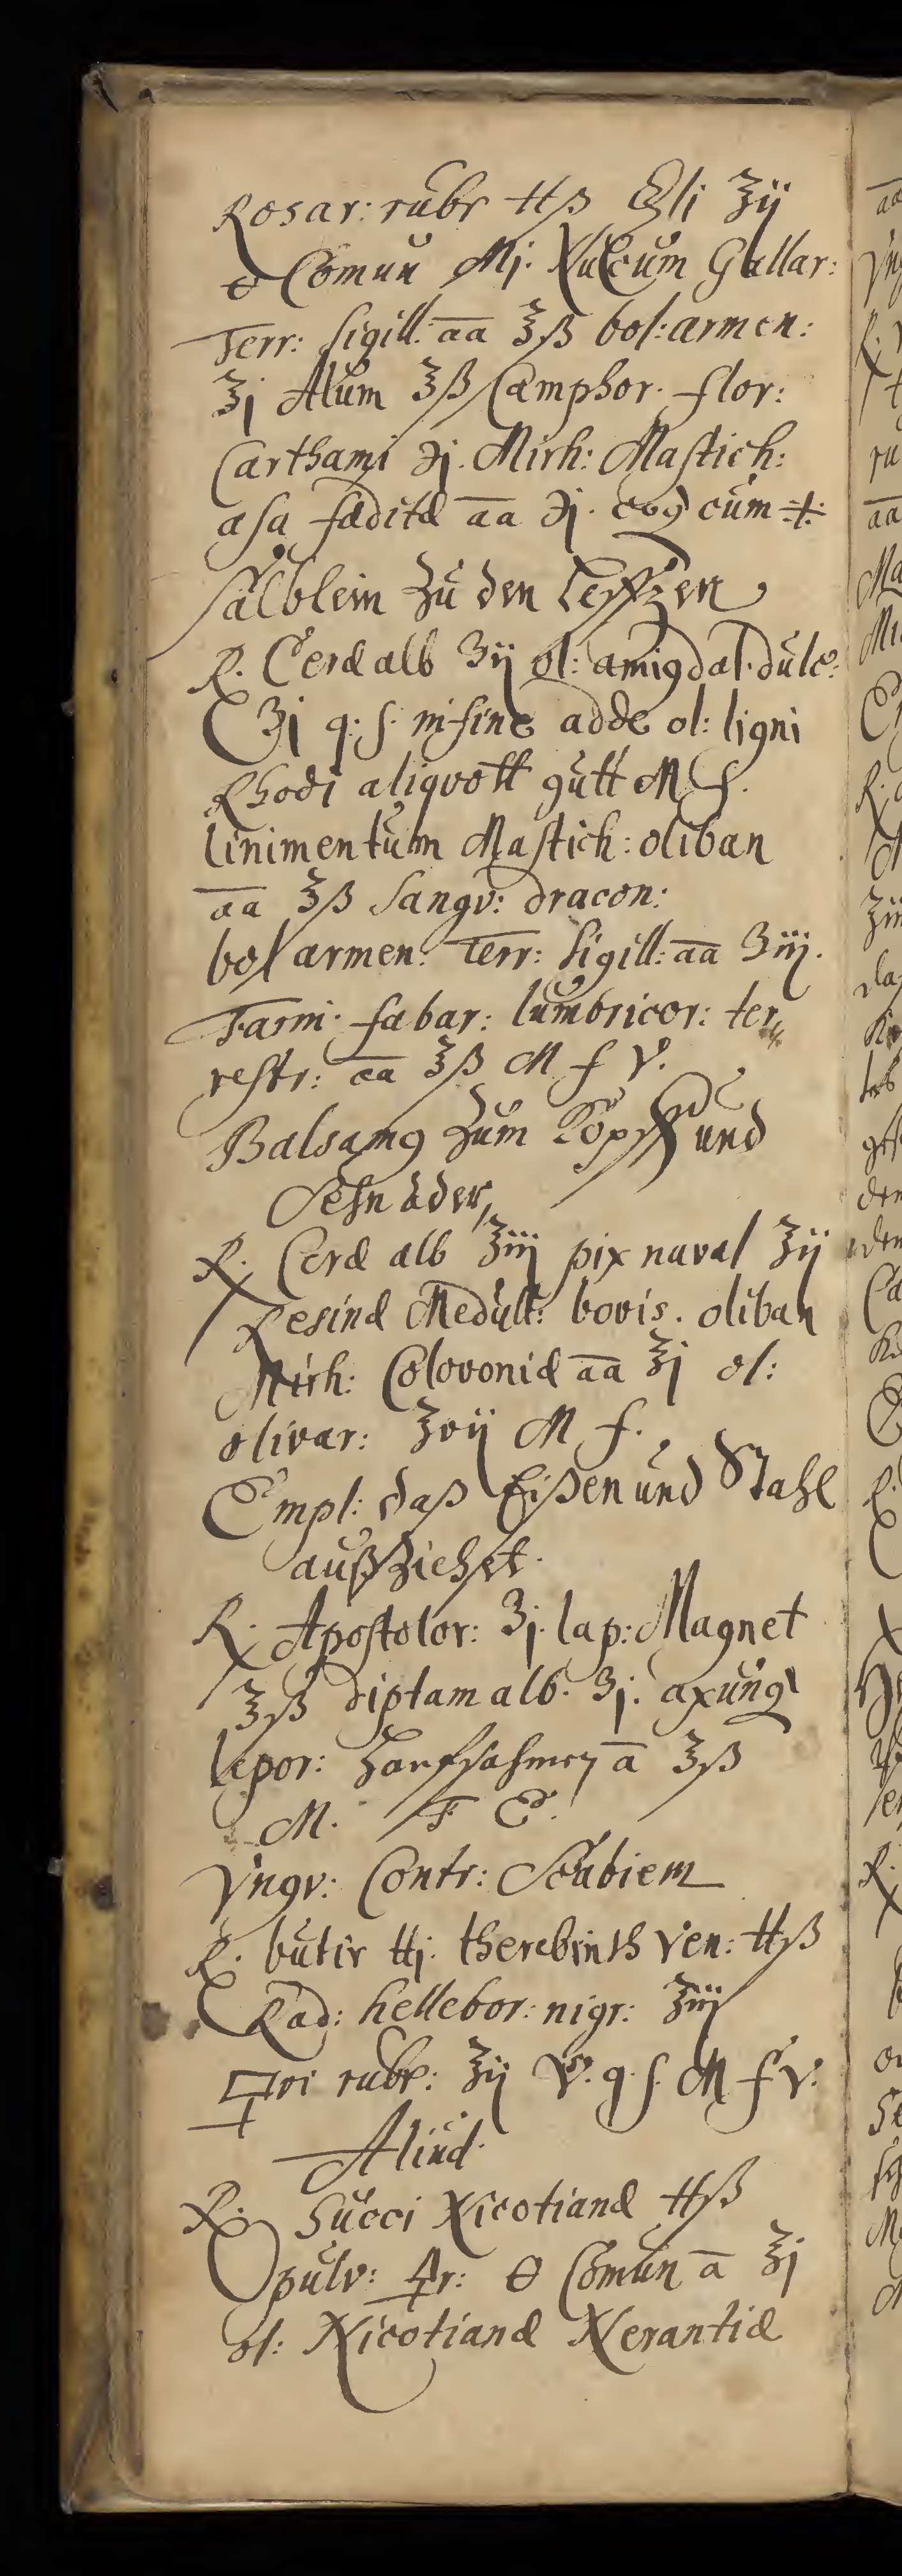 Rosar: rubr ℔ß ʒij
🜔 Comun Mj. Nucum Gallar:
Terr: Sigill: aa ℥ß bol: armen:
℥j Alum ℥ß Camphor. flor:
Carthami ℈j. Mirh: Mastich:
asa fæditæ aa ℈j. coq cum
Sälblein Zu den Leffzen
R. Ceræ alb ʒij ol: amigdal. dulc:
ʒj q: s. misine adde ol: ligni
Rhodi aliqvott gutt M f.
linimentum Mastich: oliban
aa ℥ß Sangv: dracon:
bol armen: Terr: Sigill: aa ʒiij.
Farin. fabar: lumbricor: ter
restr: aa ℥ß M f V.
Balsamq zum Kopff und
Sehnader
R. Ceræ alb ℥iij pix naval ℥ij
Resinæ Medull: bovis. oliban
Mirh: Colovoniæ aa ℥j ol:
olivar: ℥vij M f.
Empl: daß Eißen und Stahl
außziehet.
R. Apostolor: ʒj. lap: Magnet
℥ß diptam alb. ʒj. axung
lepor: Hanfsahmen a ℥ß
M. F E.
Vngv: Contr: Scabiem
R. butir ℔j. therebinth Ven: ℔ß
Rad: hellebor: nigr: ℥iij
🜿ri rubr: ℥ij V. q. s. M f V.
Aliud.
R. Succi Nicotianæ ℔ß
pulv: 🜍r: 🜔 Comun a ℥j
ol: Nicotianæ Nerantiæ